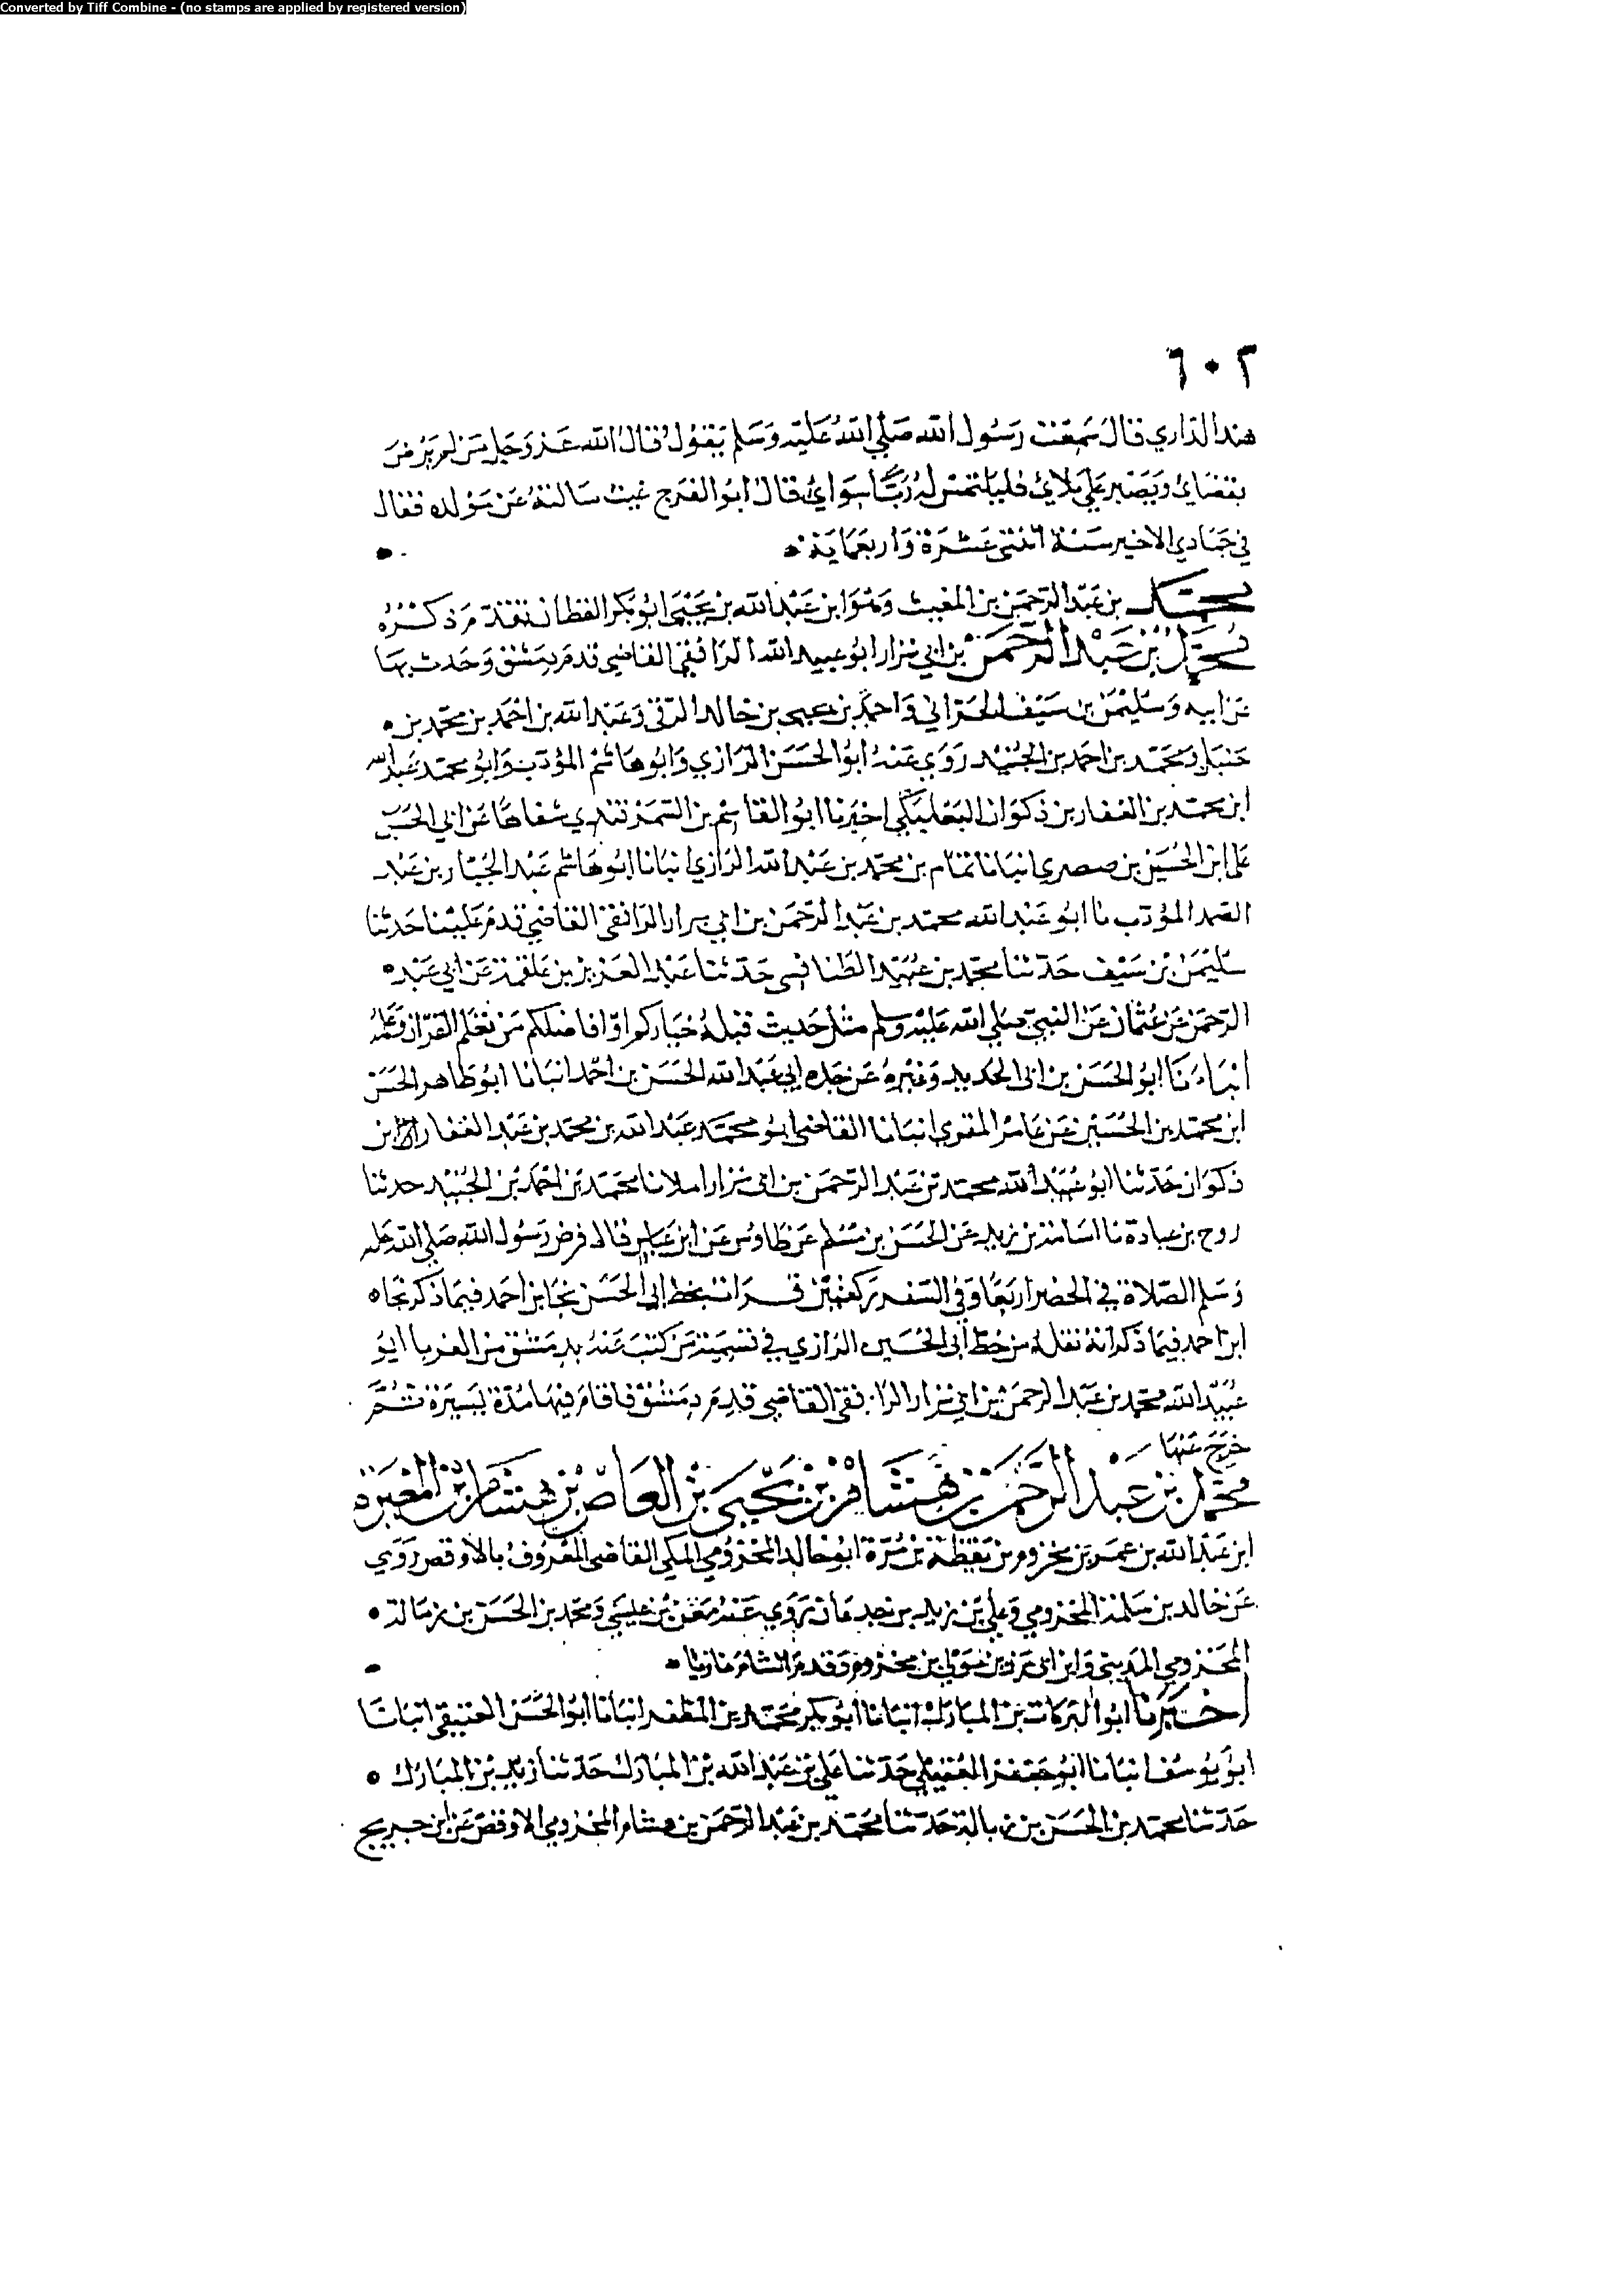 Converted by Tiff Combine - (no stamps are applied by registered version)
٦٠٢
هند الداري قال سمعت رسول الله صلي الله عليه وسلم يقول قال الله عز وجل من لم يرض
بقضاي ويصبر علي بلائ فليلتمس له ربا سوائ قال ابو الفرج غيث سالته عن مولده فقال
في جمادي الاخير سنة اثنتي عشرة واربعماية
محمد بن عبد الرحمن بن المغيث وهو ابن عبد الله بن يحيى ابو بكر القطان تقدم ذكره
محمد بن عبد الرحمن بن ابي نزار ابو عبيد الله الرافقي القاضي قدم دمشق وحدث بها
عن ابيه وسليمن بن سيف الحراني واحمد بن يحيى بن خالد الرقي وعبد الله بن احمد بن محمد بن
حنبل ومحمد بن احمد بن الجنيد روي عنه ابو الحسن الرازي وابو هاشم المؤدب وابو محمد عبد الله
ابن محمد بن الغفار بن ذكوان البعلبكي اخبرنا ابو القاسم بن السمرقندي شفاها عن ابي الحسن
علي ابن الحسين بن صصري انبانا تمام بن محمد بن عبد الله الرازي انبانا ابو هاشم عبد الجبار بن عبد
الصمد المؤدب نا ابو عبد الله محمد بن عبد الرحمن بن ابي نزار الرافقي القاضي قدم علينا حدثنا
سليمن بن سيف حدثنا محمد بن عبيد الطنافسي حدثنا عبد العزيز بن علقمة عن ابي عبد
الرحمن عن عثمان عن النبي صلي الله عليه وسلم مثل حديث قبله خياركم او افاضلكم من تعلم القران وعلمه
انباءنا ابو الحسن بن ابى الحديد وغيره عن جده ابي عبد الله الحسن بن احمد انبانا ابو طاهر الحسن
ابن محمد بن الحسين عن عامر المقوي انبانا القاضي ابو محمد عبد الله بن محمد بن عبد الغفار ابن
ذكوان حدثنا ابو عبيد الله محمد بن عبد الرحمن بن ابى نزار املا نا محمد بن احمد بن الجنيد حدثنا
روح بن عبادة نا اسامة بن زيد عن الحسن بن مسلم عن طاوس عن ابن عباس قال فرض رسول الله صلي الله عليه
وسلم الصلاة في الحضر اربعا وفي السفر ركعتين قرات بخط ابي الحسن نجا بن احمد فيما ذكر نجاه
ابن احمد فيما ذكر انه نقله من خط ابى الحسين الرازي في تسمية من كتب عنه بدمشق من الغربا ابو
عبيد الله محمد بن عبد الرحمن بن ابي نزار الرافقي القاضي قدم دمشق فاقام فيها مدة يسيرة ثم
خرج عنها
محمد بن عبد الرحمن بن هشام بن يحيى بن العاص بن هشام بن المغيرة
ابن عبد الله بن عمر بن مخزوم بن يقظة بن مرة ابو خالد المخزومي المكي القاضي المعروف بالاوقص روي
عن خالد بن سلمة المخزومي وعلي بن زيد بن جدعان روي عنه معن بن عيسي ومحمد بن الحسن بن زبالة
المخزومي المديني وابن ابى عزة بن مولي بن مخزوم وقدم الشام غازيا
اخبرنا ابو البركات بن المبارك انبانا ابو بكر محمد بن المظفر انبانا ابو الحسن العتيقي انبانا
ابو يوسف انبانا ابو جعفر العقيلي حدثنا علي بن عبد الله بن المبارك حدثنا زيد بن المبارك
حدثنا محمد بن الحسن بن زبالة حدثنا محمد بن عبد الرحمن بن هشام المخزومي الاوقص عن ابن جريج